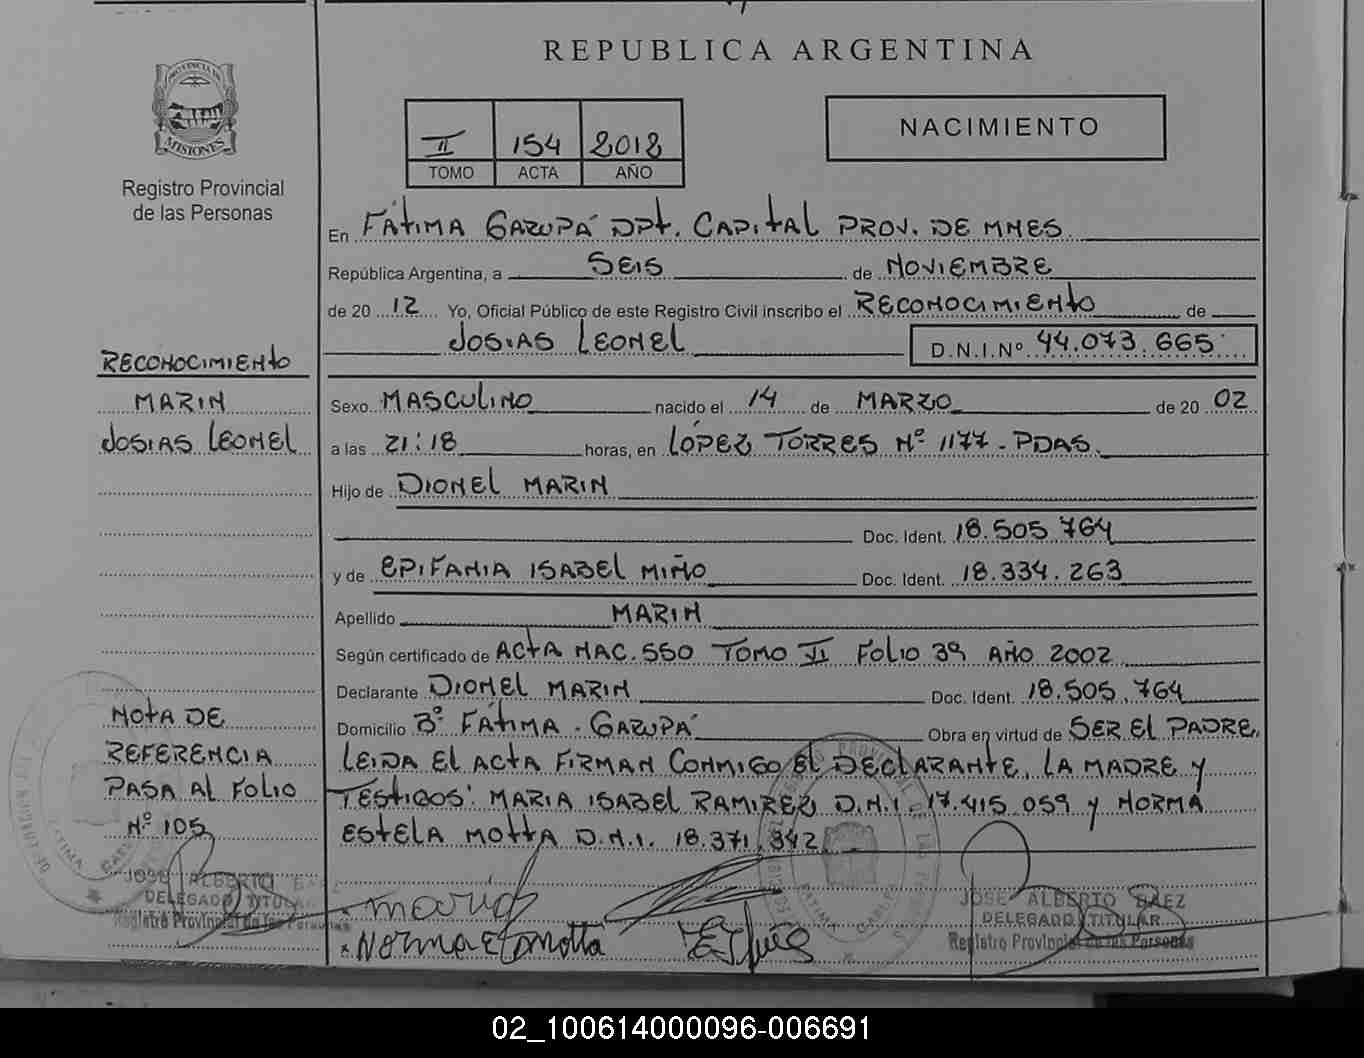 REPUBLICA ARGENTINA
PROVINCIA DE
MISIONES
Registro Provincial
de las Personas
II 154 2012
TOMO ACTA AÑO
NACIMIENTO
En FÁTIMA GARUPÁ DPt. CAPITAL PROV. DE MNES.
República Argentina, a SEIS de NOVIEMBRE
de 20 12 Yo, Oficial Público de este Registro Civil inscribo el RECONOCIMIENTO de
JOSIAS LEONEL D.N.I.Nº 44.073.665
RECONOCIMIENTO
MARIN
JOSIAS LEONEL
Sexo MASCULINO nacido el 14 de MARZO de 20 02
a las 21:18 horas, en LÓPEZ TORRES Nº 1177 - PDAS.
Hijo de DIONEL MARIN
Doc. Ident. 18.505.764
y de EPIFANIA ISABEL MIÑO Doc. Ident. 18.334.263
Apellido MARIN
Según certificado de ACTA NAC. 550 TOMO II FOLIO 39 AÑO 2002
Declarante DIONEL MARIN Doc. Ident. 18.505.764
Domicilio Bº FÁTIMA - GARUPÁ Obra en virtud de SER EL PADRE.
LEIDA EL ACTA FIRMAN CONMIGO EL DECLARANTE, LA MADRE Y
TESTIGOS: MARIA ISABEL RAMIREZ D.N.I. 17.415.059 Y NORMA
ESTELA MOTTA D.N.I. 18.371.342
NOTA DE
REFERENCIA
PASA AL FOLIO
Nº 105
JOSE ALBERTO BAEZ
DELEGADO TITULAR
Registro Provincial de las Personas
Norma E Motta
JOSE ALBERTO BAEZ
DELEGADO TITULAR
Registro Provincial de las Personas
02_100614000096-006691